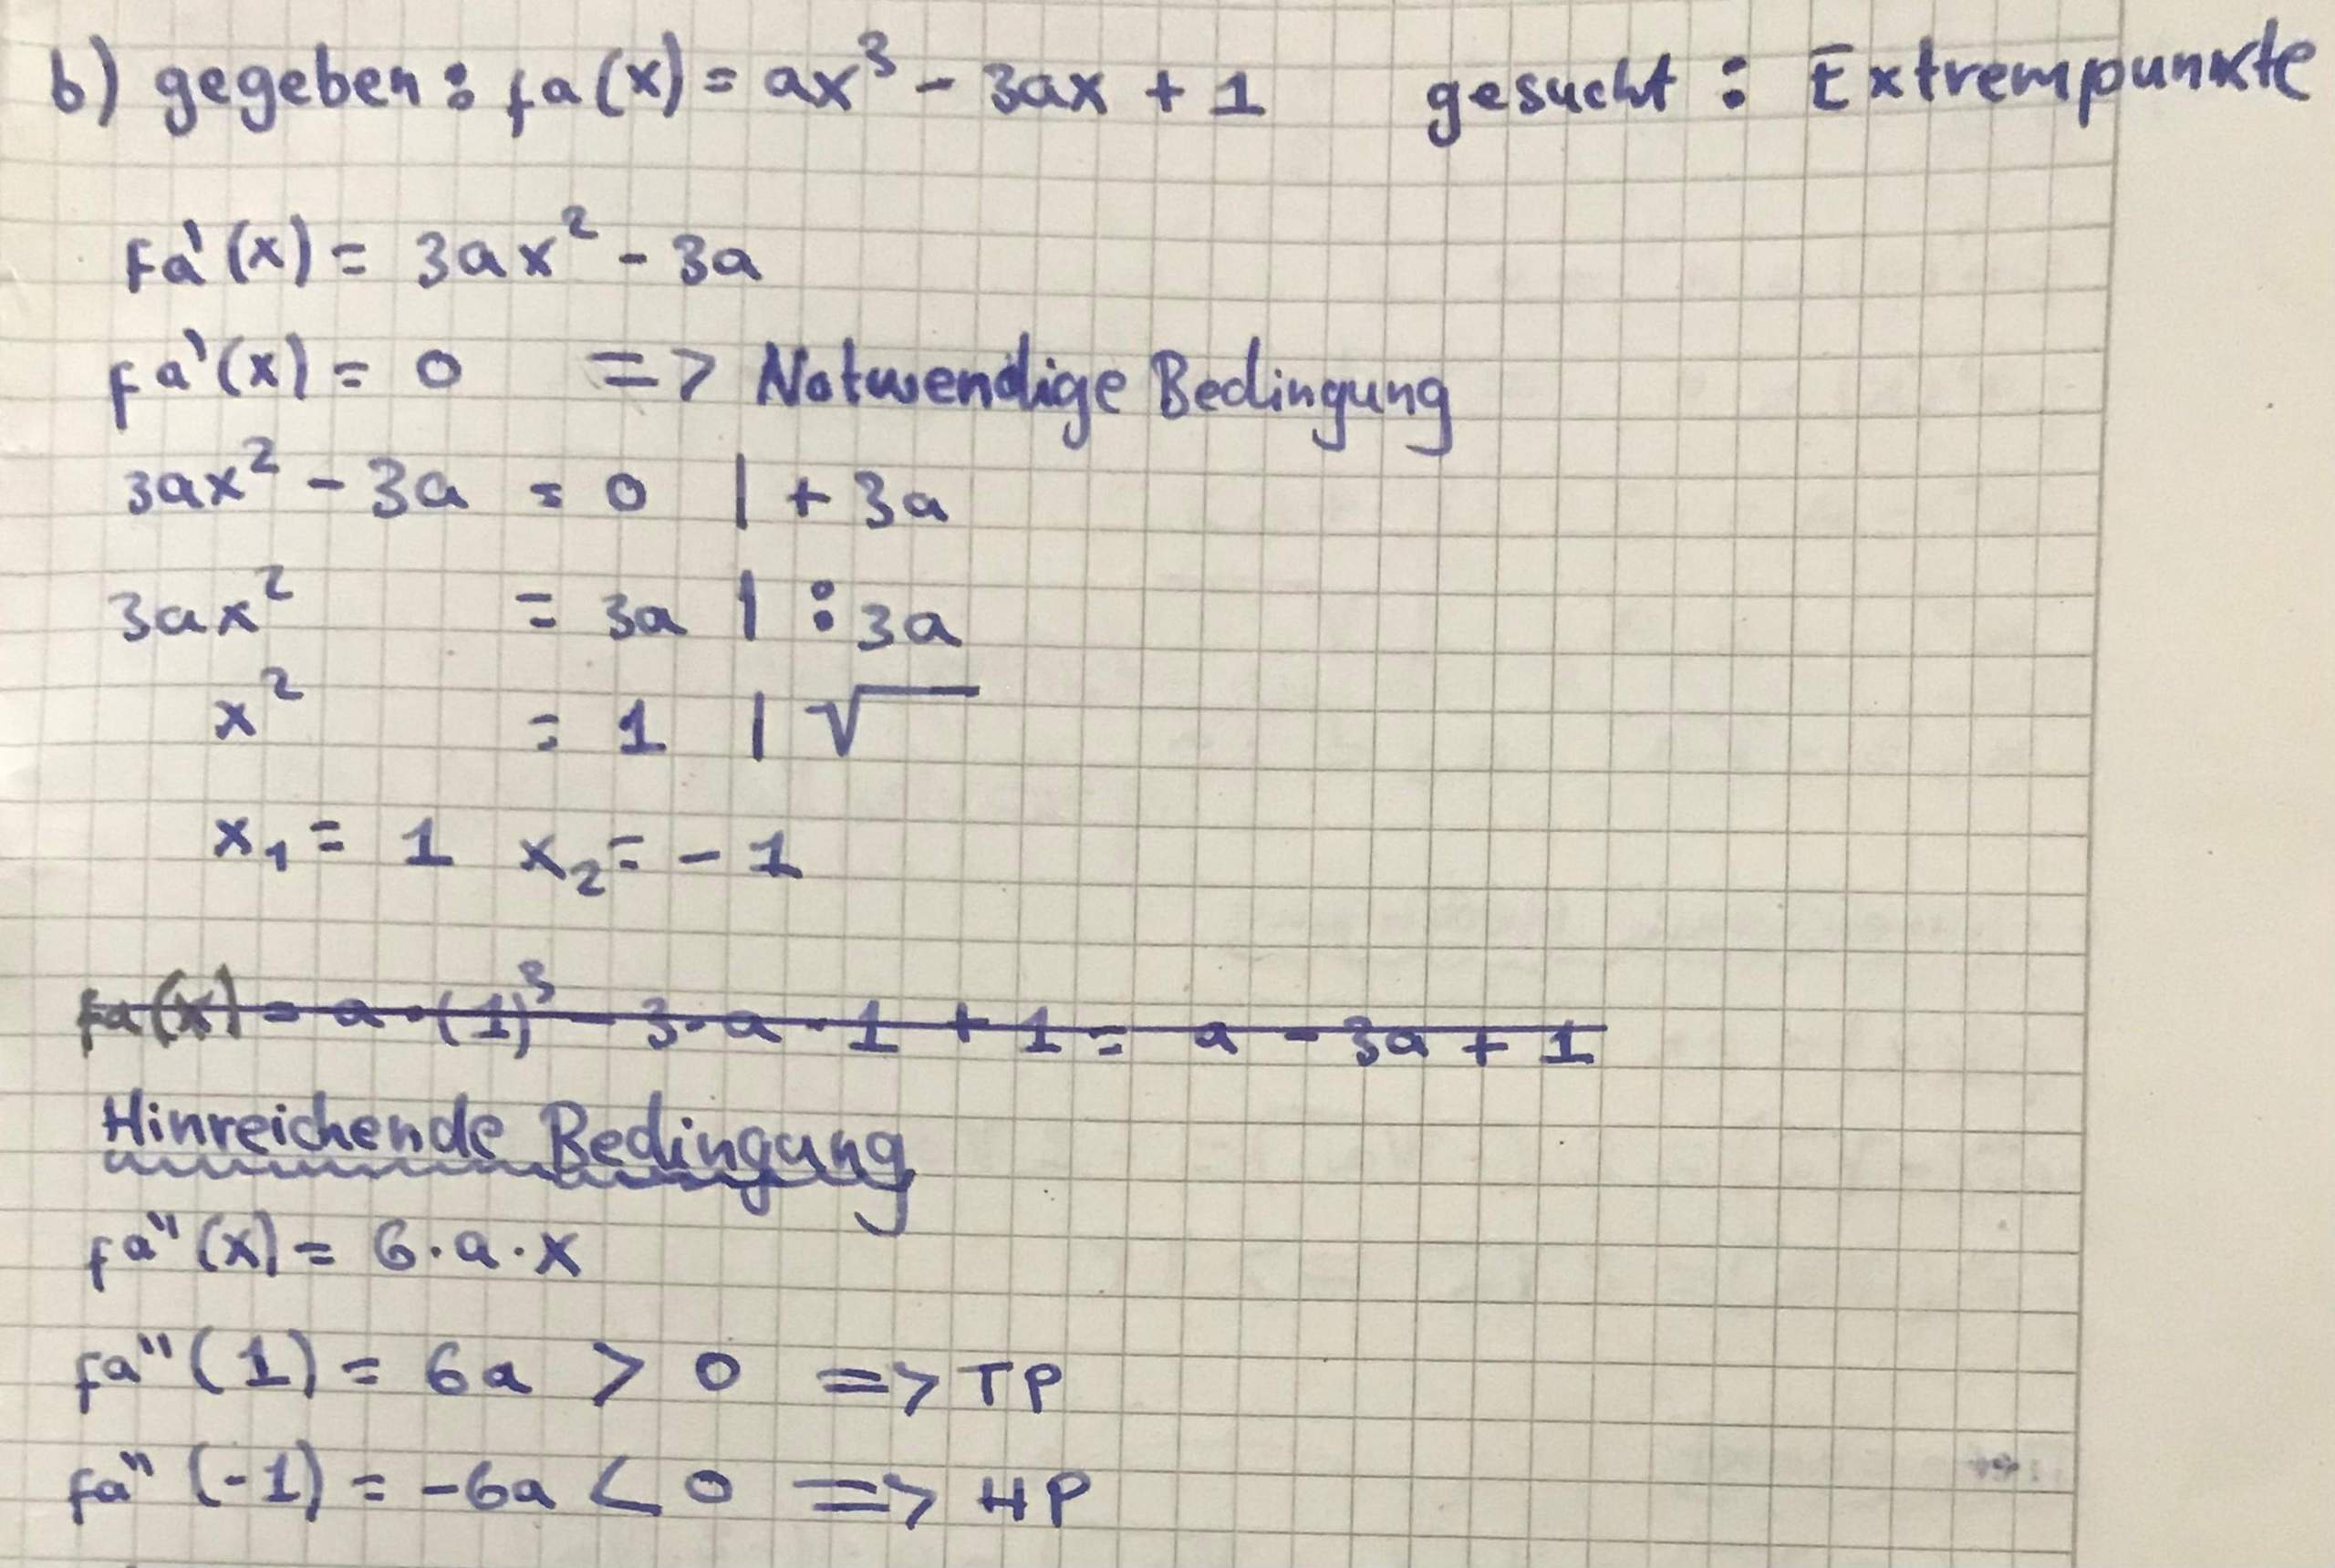 b) gegeben: fa(x) = ax³ - 3ax + 1 gesucht: Extrempunkte
fa'(x) = 3ax² - 3a
fa'(x) = 0 => Notwendige Bedingung
3ax² - 3a = 0 | + 3a
3ax² = 3a | : 3a
x² = 1 | √
x₁ = 1 x₂ = - 1
fa(x) = a · (1)³ - 3 · a · 1 + 1 = a - 3a + 1
Hinreichende Bedingung
fa''(x) = 6 · a · x
fa''(1) = 6a > 0 => TP
fa''(-1) = -6a < 0 => HP